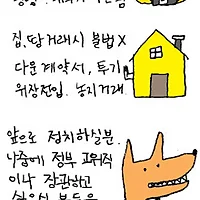 집,땅거래시 불법X
다운계약서, 투기
위장전입. 농지거래
앞으로 정치하실분.
나중에 정부 고위직
이나 장관하고